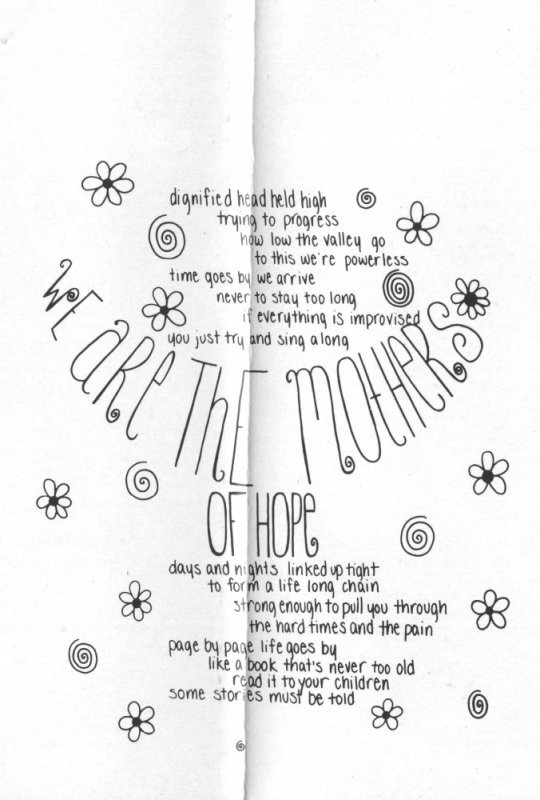 dignified head held high
trying to progress
how low the valley go
to this we're powerless
time goes by we arrive
never to stay too long
if everything is improvised
you just try and sing along
WE ARE THE MOTHERS
OF HOPE
days and nights linked up tight
to form a life long chain
strong enough to pull you through
the hard times and the pain
page by page life goes by
like a book that's never too old
read it to your children
some stories must be told